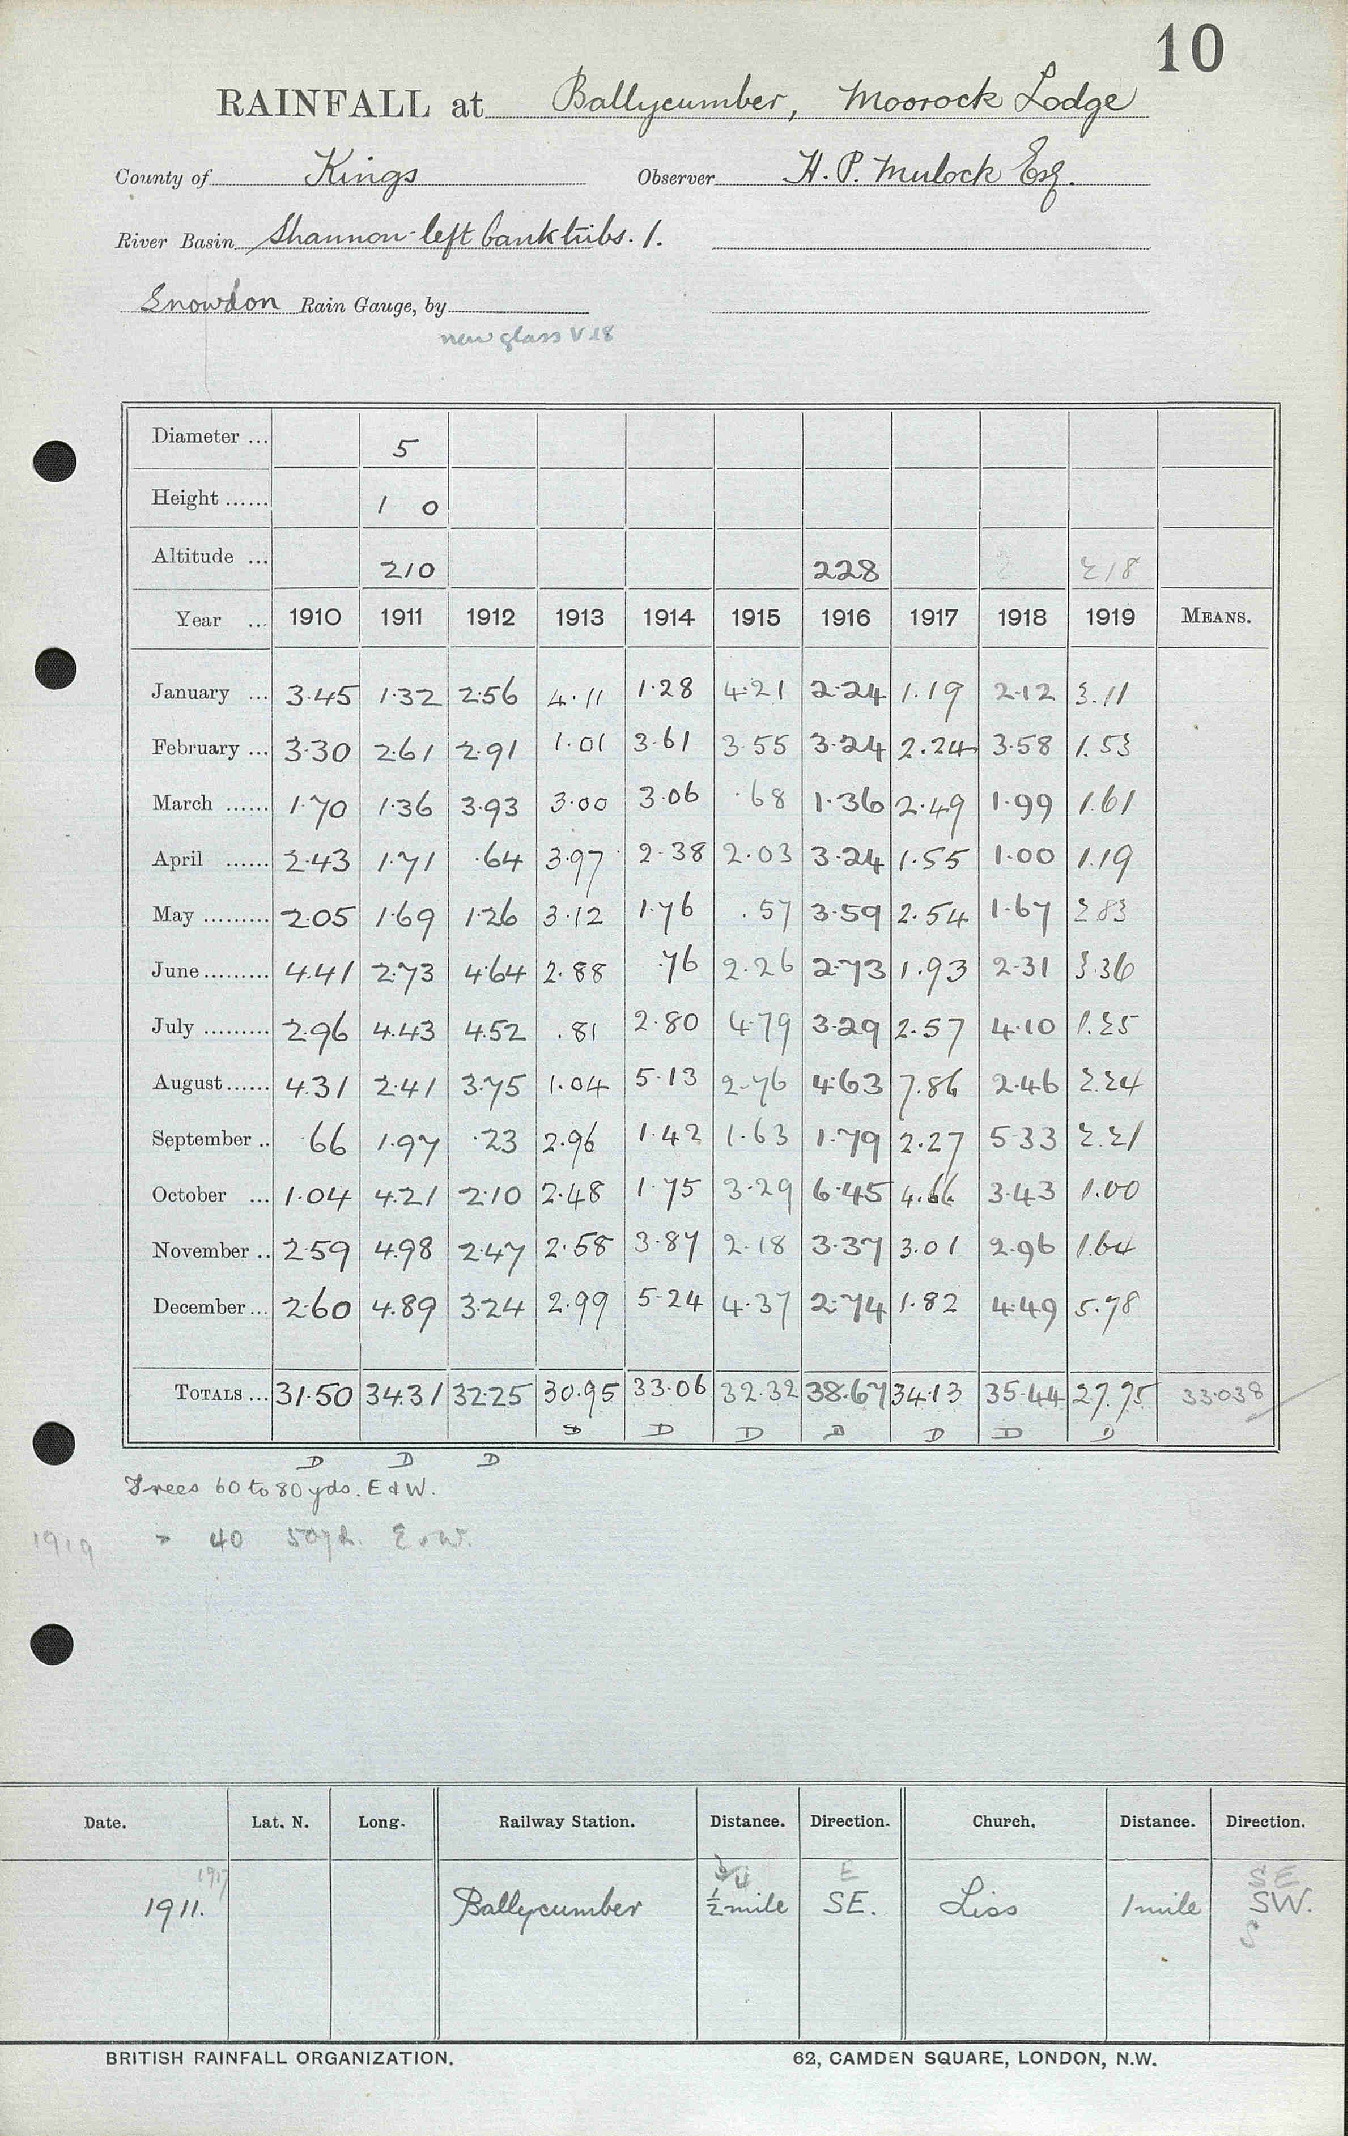 10
RAINFALL at Ballycumber, Moorock Lodge
County of Kings Observer H. P. Mulock Esq.
River Basin Shannon-left bank tribs. 1.
Snowdon Rain Gauge, by
new glass V 18
Diameter ... 5
Height ...... 1 0
Altitude ... 210 228 218
Year ... 1910 1911 1912 1913 1914 1915 1916 1917 1918 1919 MEANS.
January ... 3.45 1.32 2.56 4.11 1.28 4.21 2.24 1.19 2.12 3.11
February ... 3.30 2.61 2.91 1.01 3.61 3.55 3.24 2.24 3.58 1.53
March ...... 1.70 1.36 3.93 3.00 3.06 .68 1.36 2.49 1.99 1.61
April ...... 2.43 1.71 .64 3.97 2.38 2.03 3.24 1.55 1.00 1.19
May ......... 2.05 1.69 1.26 3.12 1.76 .57 3.59 2.54 1.67 2.83
June ......... 4.41 2.73 4.64 2.88 .76 2.26 2.73 1.93 2.31 3.36
July ......... 2.96 4.43 4.52 .81 2.80 4.79 3.29 2.57 4.10 1.25
August ...... 4.31 2.41 3.75 1.04 5.13 2.76 4.63 7.86 2.46 2.24
September .. .66 1.97 .23 2.96 1.42 1.63 1.79 2.27 5.33 2.21
October ... 1.04 4.21 2.10 2.48 1.75 3.29 6.45 4.66 3.43 1.00
November .. 2.59 4.98 2.47 2.58 3.87 2.18 3.37 3.01 2.96 1.64
December ... 2.60 4.89 3.24 2.99 5.24 4.37 2.74 1.82 4.49 5.78
TOTALS ... 31.50 34.31 32.25 30.95 33.06 32.32 38.67 34.13 35.44 27.75 33.038
D D D D D D D
D D D
Trees 60 to 80 yds. E & W.
1919 " 40 50 yd. E & W.
Date. Lat. N. Long. Railway Station. Distance. Direction. Church. Distance. Direction.
1917 3/4 E SE
1911. Ballycumber 1/2 mile SE. Liss 1 mile SW.
S
BRITISH RAINFALL ORGANIZATION. 62, CAMDEN SQUARE, LONDON, N.W.